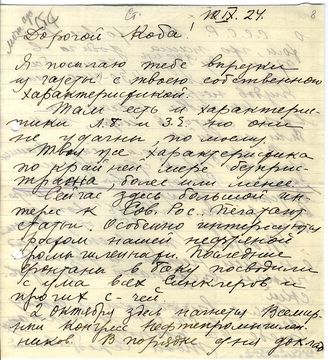 10.IX.24. 8
Дорогой Коба!
Я посылаю тебе вырезки
из газеты с твоею собственною
характеристикой.
Там есть и характери-
стики Л.Т. и З.З. но они
не удачны по моему.
Твоя же характеристика
по крайней мере беспри-
страстна, более или менее.
Сейчас здесь большой ин-
терес к Сов. Рос. Печатают
статьи. Особенно интересуются
ростом нашей нефтяной
промышленности. Последние
фонтаны в Баку посводили
с ума всех Синклеров и
прочих с-чей.
2 октября здесь начнется Всемир-
ный конгресс нефтепромышлен-
ников. В порядке дня доклад